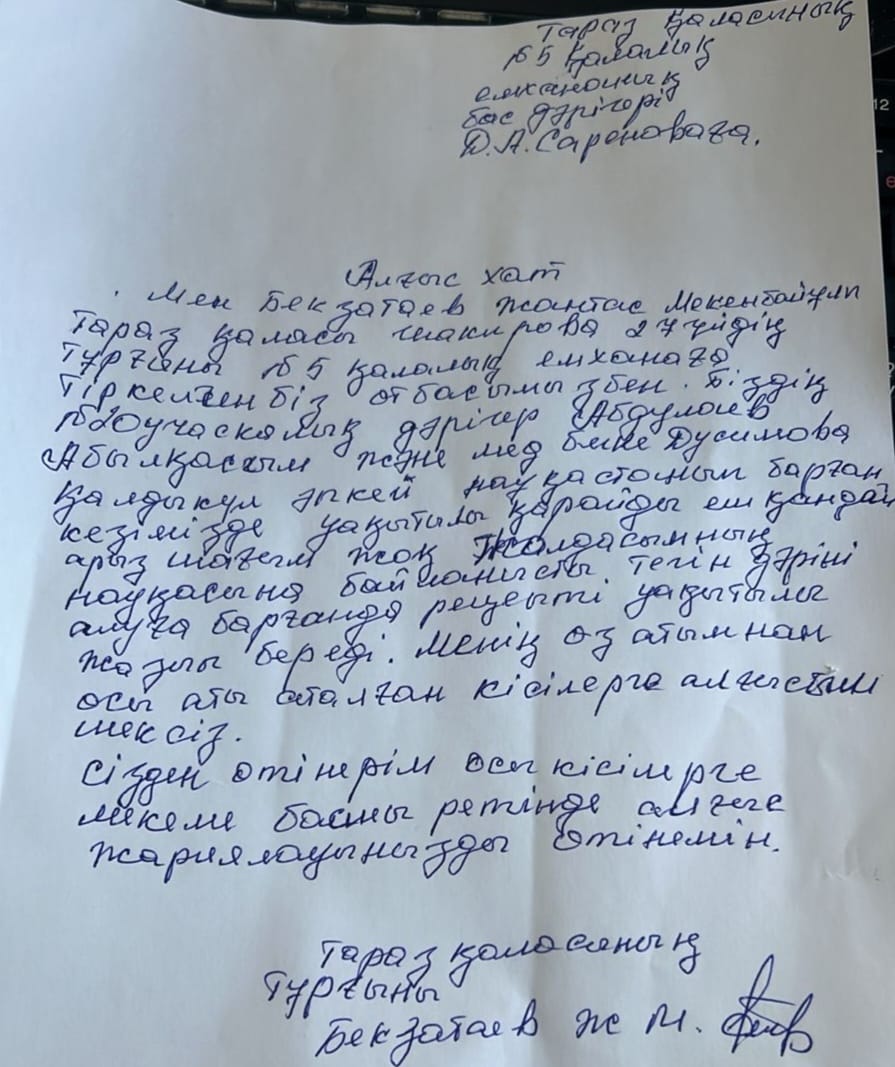 Тараз қаласының
№5 қалалық
емхананың
бас дәрігері
Д.А.Сареноваға.
Алғыс хат
Мен Бекзатаев Жантас Мекенбайұлы
Тараз қаласы Шакирова 27 үйдің
тұрғыны №5 қалалық емханаға
тіркелгенбіз отбасымызбен. Біздің
№20 участкалық дәрігер Абдулаев
Абылқасым және мед бике Дусимова
Қалдыкул әпкей науқастанып барған
кезімізде уақытылы қарайды еш қандай
арыз шағым жоқ Жолдасымның
науқасына байланысты тегін дәріні
алуға барғанда рецепті уақытылы
жазып береді. Менің өз атымнан
осы аты аталған кісілерге алғыстым
шексіз.
Сізден өтінерім осы кісілерге
мекеме басшы ретінде алғыс
жариялауыңызды өтінемін.
Тараз қаласының
тұрғыны
Бекзатаев Ж М.